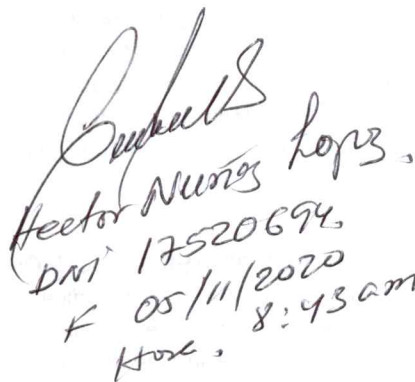 Hector Nuñez Lopez.
DNI 17520694.
F 05/11/2020
Hora. 8:43 am